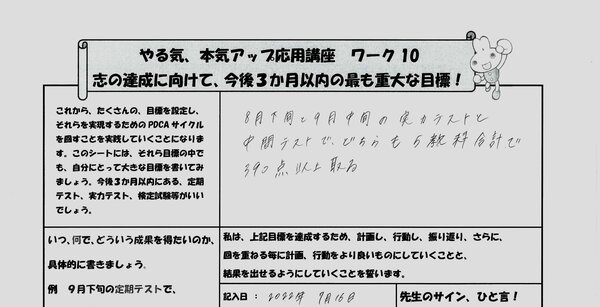 やる気、本気アップ応用講座　ワーク 10
志の達成に向けて、今後３か月以内の最も重大な目標！
これから、たくさんの、目標を設定し、
それらを実現するための PDCA サイクル
を回すことを実践していくことになりま
す。このシートには、それら目標の中で
も、自分にとって大きな目標を書いてみ
ましょう。今後３か月以内にある、定期
テスト、実力テスト、検定試験等がいい
でしょう。
8月下旬と9月中旬の実力テストと
中間テストで、どちらも5教科合計で
390点以上取る
いつ、何で、どういう成果を得たいのか、
具体的に書きましょう。
例　９月下旬の定期テストで、
私は、上記目標を達成するため、計画し、行動し、振り返り、さらに、
回を重ねる毎に計画、行動をより良いものにしていくことと、
結果を出せるようにしていくことを誓います。
記入日 : 2022年 7月16日
先生のサイン、ひと言！